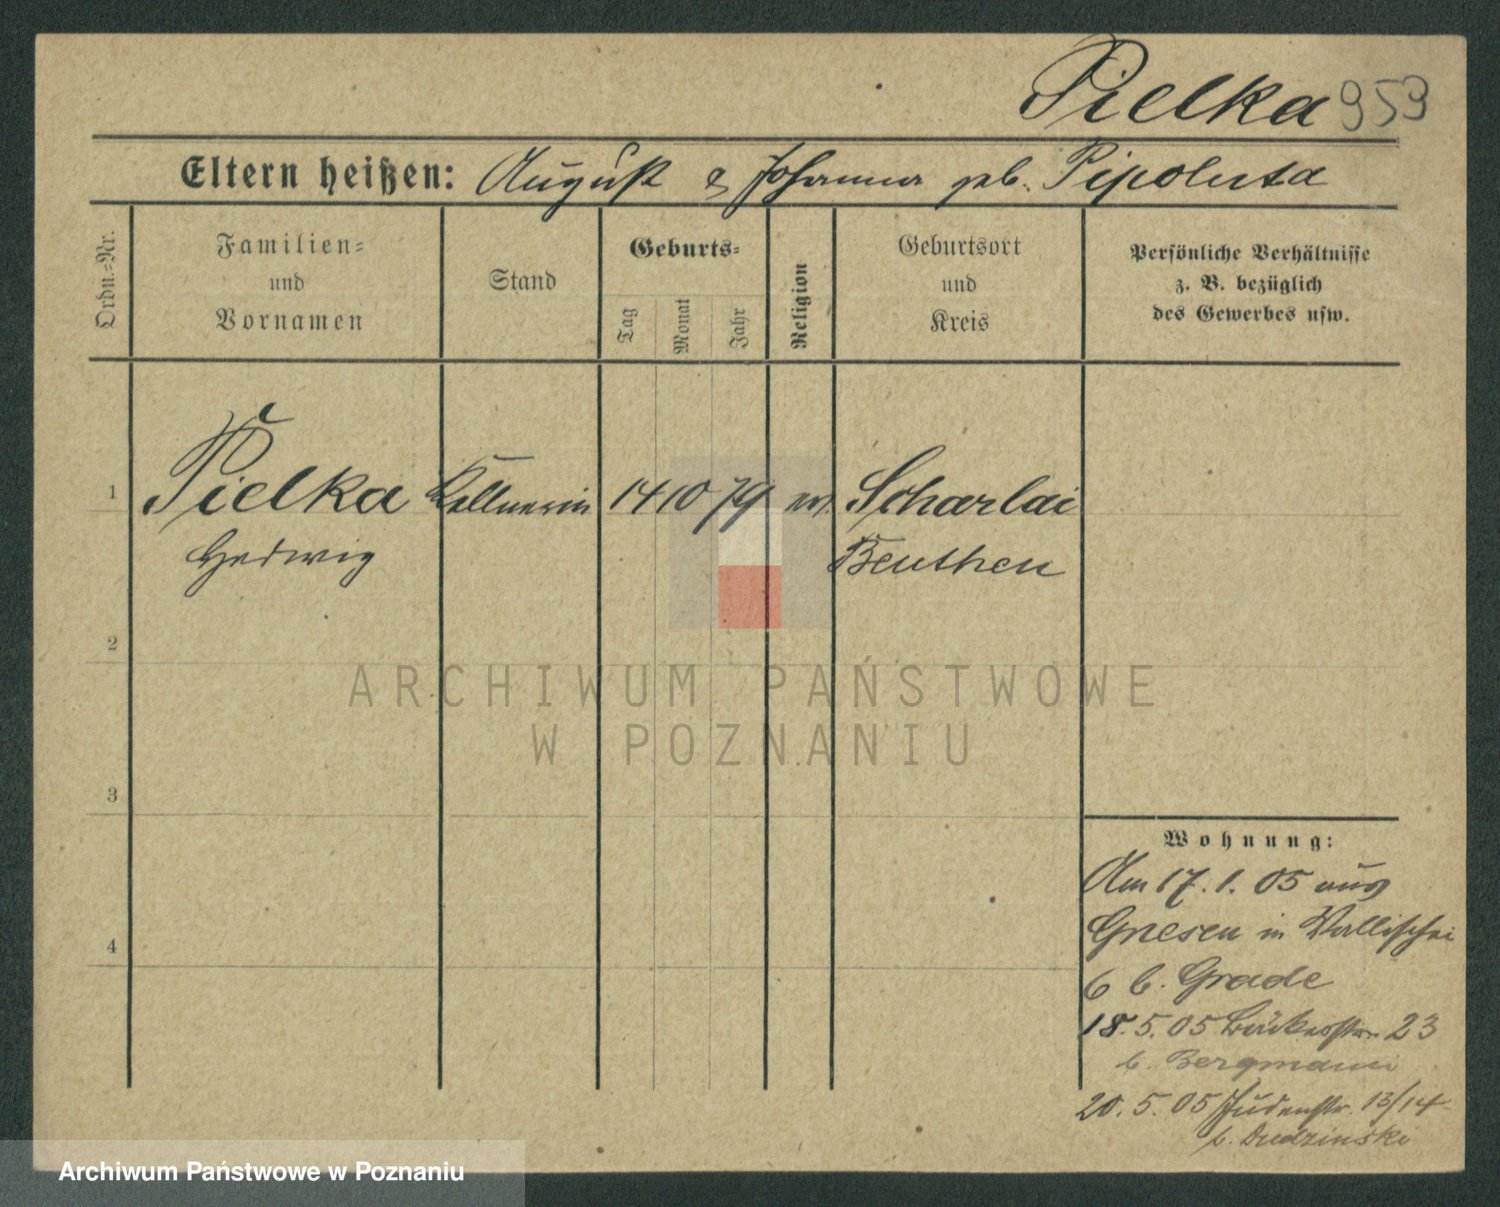 Pielka 959
Eltern heißen: August & Johanna geb. Pipoluta
Ordn.-Nr.
Familien-
und
Vornamen
Stand
Geburts-
Tag
Monat
Jahr
Religion
Geburtsort
und
Kreis
Persönliche Verhältnisse
z. B. bezüglich
des Gewerbes usw.
1 Pielka Kellnerin 14 10 79 Scharlai
Hedwig Beuthen
2
3
4
Wohnung:
Am 17. 1. 05 aus
Gnesen in Wallischei
6 b. Grade
18. 5. 05 Bäckerstr. 23
b. Bergmann
20. 5. 05 Judenstr. 13/14
b. Dudzinski
ARCHIWUM PAŃSTWOWE
W POZNANIU
Archiwum Państwowe w Poznaniu